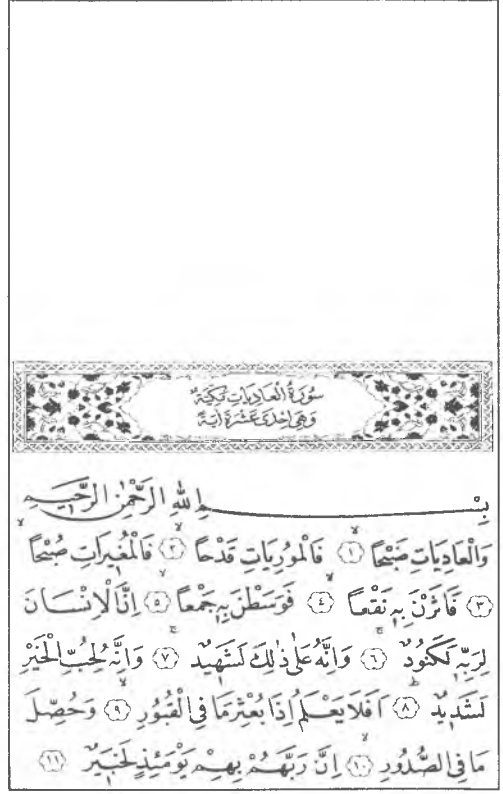 سُورَةُ الْعَادِيَاتِ مَكِّيَّةٌ
وَهِىَ اِحْدٰى عَشْرَةَ اٰيَةً
بِسْمِ اللّٰهِ الرَّحْمٰنِ الرَّح۪يمِ
وَالْعَادِيَاتِ ضَبْحاً ﴿١﴾ فَالْمُورِيَاتِ قَدْحاً ﴿٢﴾ فَالْمُغ۪يرَاتِ صُبْحاً
﴿٣﴾ فَاَثَرْنَ بِه۪ نَقْعاً ﴿٤﴾ فَوَسَطْنَ بِه۪ جَمْعاً ﴿٥﴾ اِنَّ الْاِنْسَانَ
لِرَبِّه۪ لَكَنُودٌ ﴿٦﴾ وَاِنَّهُ عَلٰى ذٰلِكَ لَشَه۪يدٌ ﴿٧﴾ وَاِنَّهُ لِحُبِّ الْخَيْرِ
لَشَد۪يدٌ ﴿٨﴾ اَفَلَا يَعْلَمُ اِذَا بُعْثِرَ مَا فِى الْقُبُورِ ﴿٩﴾ وَحُصِّلَ
مَا فِى الصُّدُورِ ﴿١٠﴾ اِنَّ رَبَّهُمْ بِهِمْ يَوْمَئِذٍ لَخَب۪يرٌ ﴿١١﴾